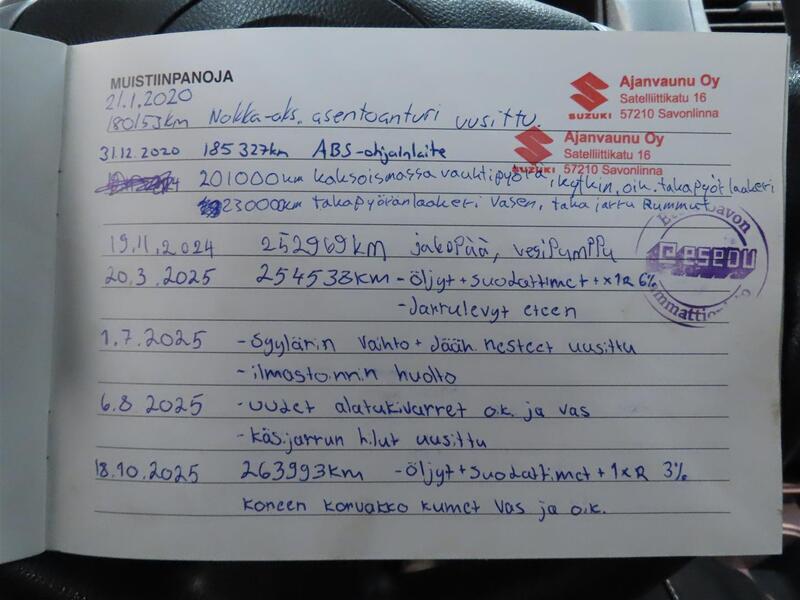 MUISTIINPANOJA
Ajanvaunu Oy
Satelliittikatu 16
57210 Savonlinna
SUZUKI
21.1.2020
180153km Nokka-aks. asentoanturi uusittu.
Ajanvaunu Oy
Satelliittikatu 16
57210 Savonlinna
SUZUKI
31.12.2020 185327km ABS-ohjainlaite
201000km kaksoismassa vauhtipyörä, kytkin, oik. takapyör laakeri
23000km takapyöränlaakeri vasen, taka jarru Rummut
19.11.2024 252969km jakopää, vesipumppu
esedu
20.3.2025 254538km - öljyt + suodattimet + x1R 6%
- Jarrulevyt eteen
1.7.2025 - Syylärin vaihto + Jääh. nesteet uusittu
- ilmastoinnin huolto
6.8 2025 - uudet alatukivarret oik. ja vas
- käsijarrun hilut uusittu
18.10.2025 263993km - öljyt + suodattimet + 1xR 3%
koneen korvakko kumet vas ja oik.